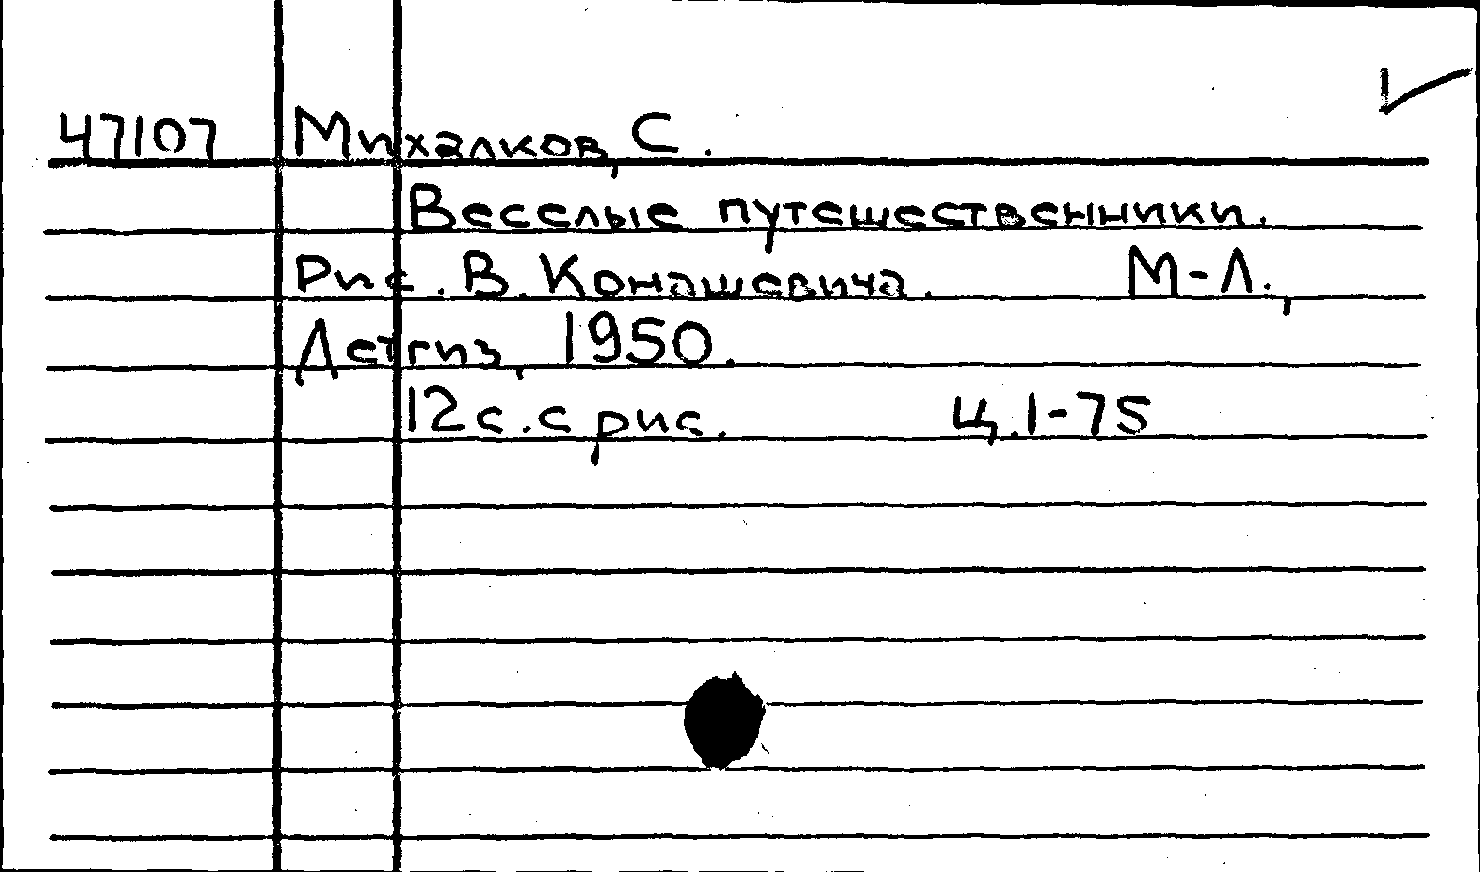 47107 Михалков, С.
Веселые путешественники.
Рис. В. Конашевича. М-Л.,
Детгиз, 1950.
12 с. с рис. Ц. 1-75